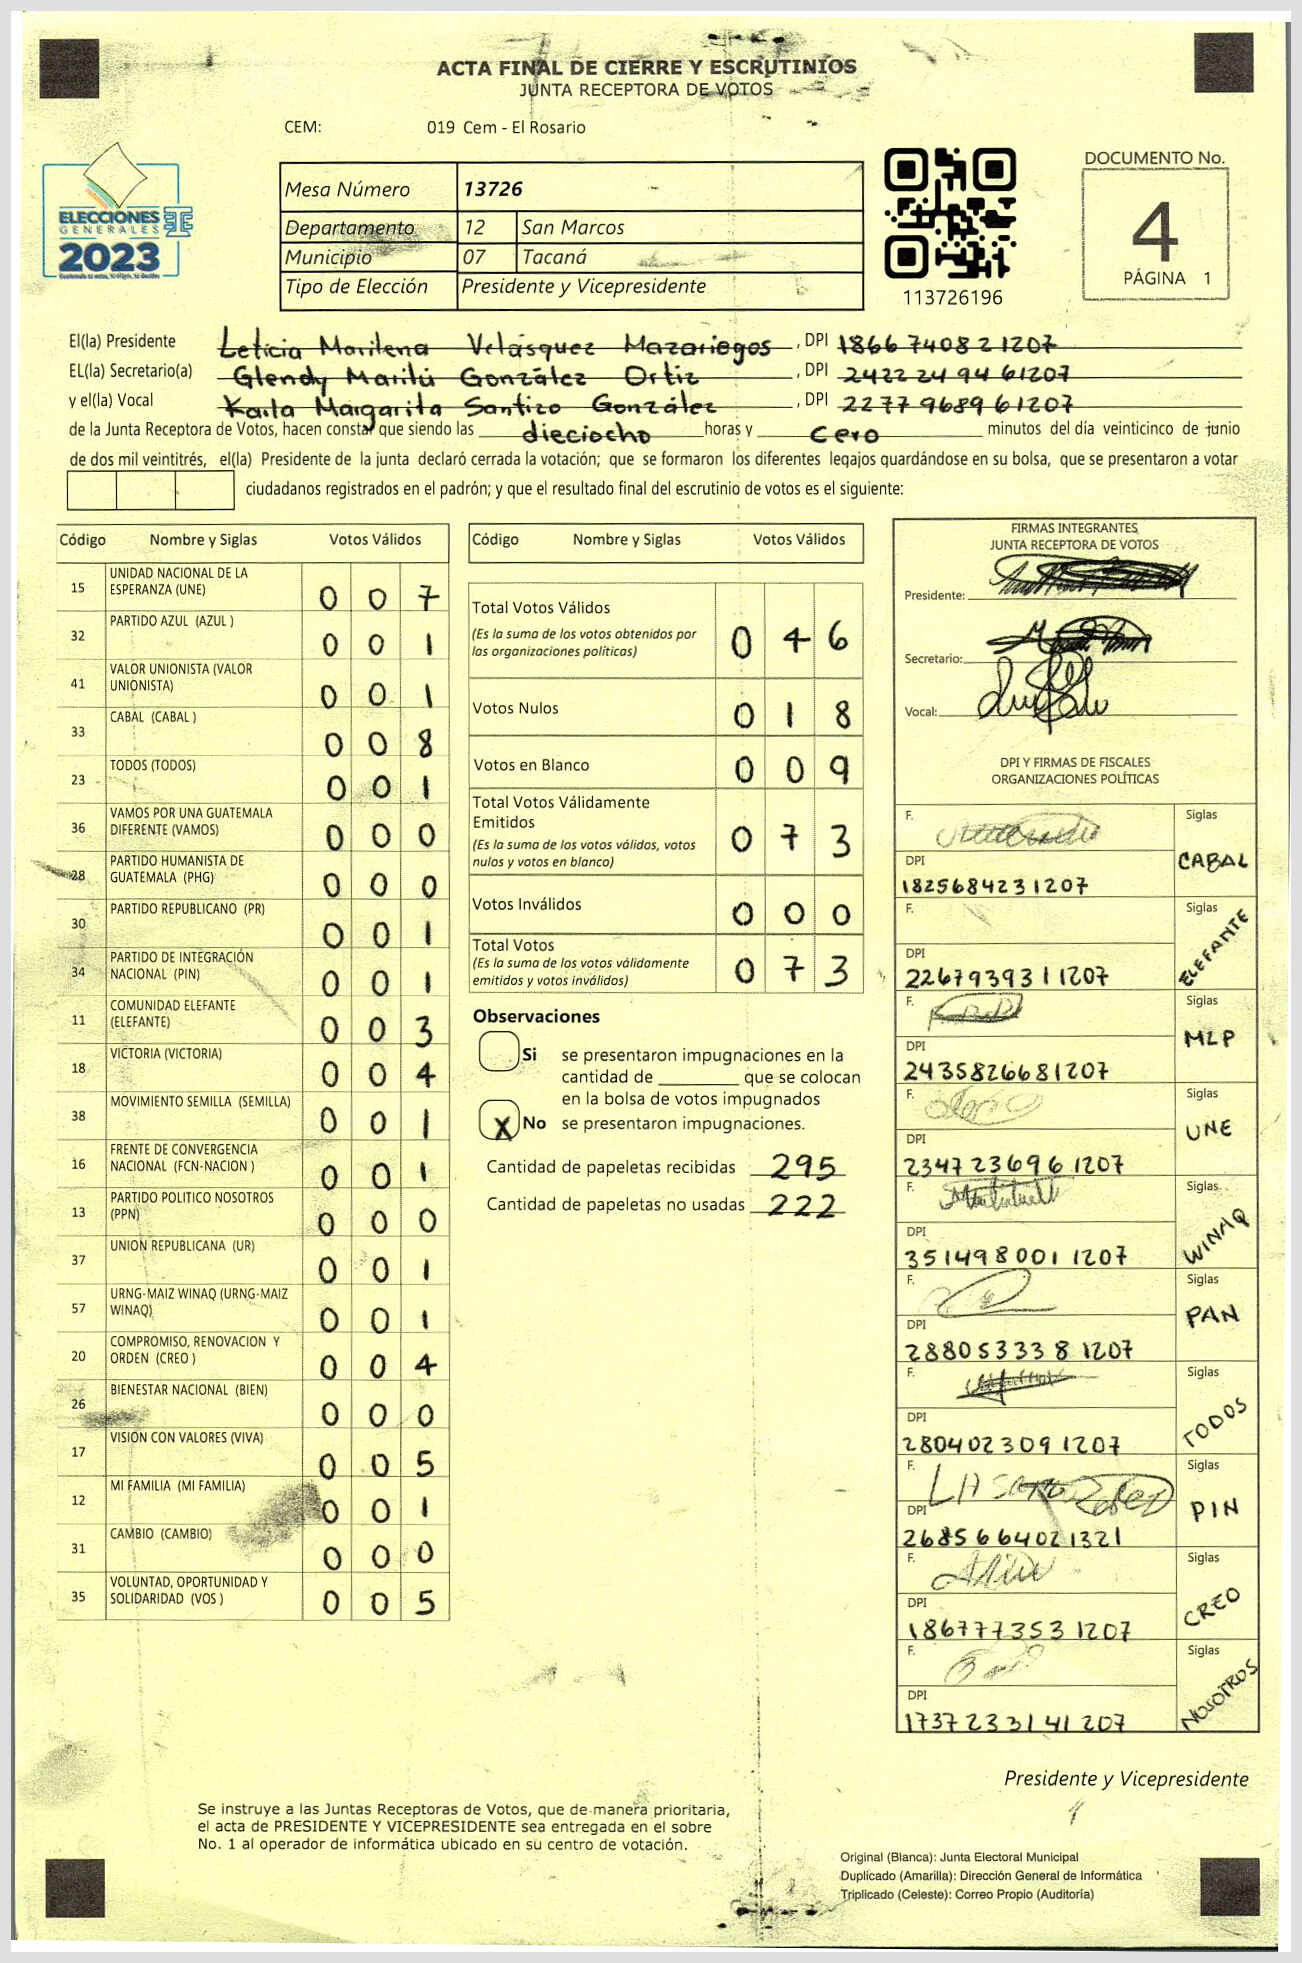 ACTA FINAL DE CIERRE Y ESCRUTINIOS
JUNTA RECEPTORA DE VOTOS
CEM: 019 Cem - El Rosario
ELECCIONES
GENERALES
2023
Mesa Número 13726
Departamento 12 San Marcos
Municipio 07 Tacaná
Tipo de Elección Presidente y Vicepresidente
113726196
DOCUMENTO No.
4
PÁGINA 1
El(la) Presidente Leticia Marilena Velásquez Mazariegos , DPI 1866 74082 1207
EL(la) Secretario(a) Glendy Marilú González Ortiz , DPI 2422 24 94 61207
y el(la) Vocal Karla Margarita Santizo González , DPI 2277 9689 61207
de la Junta Receptora de Votos, hacen constar que siendo las dieciocho horas y cero minutos del día veinticinco de junio
de dos mil veintitrés, el(la) Presidente de la junta declaró cerrada la votación; que se formaron los diferentes legajos guardándose en su bolsa, que se presentaron a votar
ciudadanos registrados en el padrón; y que el resultado final del escrutinio de votos es el siguiente:
Código Nombre y Siglas Votos Válidos
15 UNIDAD NACIONAL DE LA
ESPERANZA (UNE) 0 0 7
32 PARTIDO AZUL (AZUL ) 0 0 1
41 VALOR UNIONISTA (VALOR
UNIONISTA) 0 0 1
33 CABAL (CABAL ) 0 0 8
23 TODOS (TODOS) 0 0 1
36 VAMOS POR UNA GUATEMALA
DIFERENTE (VAMOS) 0 0 0
28 PARTIDO HUMANISTA DE
GUATEMALA (PHG) 0 0 0
30 PARTIDO REPUBLICANO (PR) 0 0 1
34 PARTIDO DE INTEGRACIÓN
NACIONAL (PIN) 0 0 1
11 COMUNIDAD ELEFANTE
(ELEFANTE) 0 0 3
18 VICTORIA (VICTORIA) 0 0 4
38 MOVIMIENTO SEMILLA (SEMILLA) 0 0 1
16 FRENTE DE CONVERGENCIA
NACIONAL (FCN-NACION ) 0 0 1
13 PARTIDO POLITICO NOSOTROS
(PPN) 0 0 0
37 UNION REPUBLICANA (UR) 0 0 1
57 URNG-MAIZ WINAQ (URNG-MAIZ
WINAQ) 0 0 1
20 COMPROMISO, RENOVACION Y
ORDEN (CREO ) 0 0 4
26 BIENESTAR NACIONAL (BIEN) 0 0 0
17 VISION CON VALORES (VIVA) 0 0 5
12 MI FAMILIA (MI FAMILIA) 0 0 1
31 CAMBIO (CAMBIO) 0 0 0
35 VOLUNTAD, OPORTUNIDAD Y
SOLIDARIDAD (VOS ) 0 0 5
Código Nombre y Siglas Votos Válidos
Total Votos Válidos
(Es la suma de los votos obtenidos por
las organizaciones políticas) 0 4 6
Votos Nulos 0 1 8
Votos en Blanco 0 0 9
Total Votos Válidamente
Emitidos
(Es la suma de los votos válidos, votos
nulos y votos en blanco) 0 7 3
Votos Inválidos 0 0 0
Total Votos
(Es la suma de los votos válidamente
emitidos y votos inválidos) 0 7 3
Observaciones
Si se presentaron impugnaciones en la
cantidad de ________ que se colocan
en la bolsa de votos impugnados
X No se presentaron impugnaciones.
Cantidad de papeletas recibidas 295
Cantidad de papeletas no usadas 222
FIRMAS INTEGRANTES
JUNTA RECEPTORA DE VOTOS
Presidente:
Secretario:
Vocal:
DPI Y FIRMAS DE FISCALES
ORGANIZACIONES POLÍTICAS
F. Siglas
DPI CABAL
1825684231207
F. Siglas
DPI ELEFANTE
2267939311207
F. Siglas
DPI MLP
2435826681207
F. Siglas
DPI UNE
2347 23696 1207
F. Siglas
DPI WINAQ
351498001 1207
F. Siglas
DPI PAN
288053338 1207
F. Siglas
DPI TODOS
280402309 1207
F. Siglas
DPI PIN
2685664021321
F. Siglas
DPI CREO
186777353 1207
F. Siglas
DPI NOSOTROS
1737 233141207
Presidente y Vicepresidente
Se instruye a las Juntas Receptoras de Votos, que de manera prioritaria,
el acta de PRESIDENTE Y VICEPRESIDENTE sea entregada en el sobre
No. 1 al operador de informática ubicado en su centro de votación.
Original (Blanca): Junta Electoral Municipal
Duplicado (Amarilla): Dirección General de Informática
Triplicado (Celeste): Correo Propio (Auditoría)